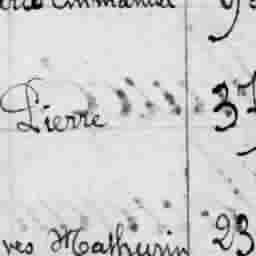 Emmanuel
Pierre 37
ves Mathurin 23